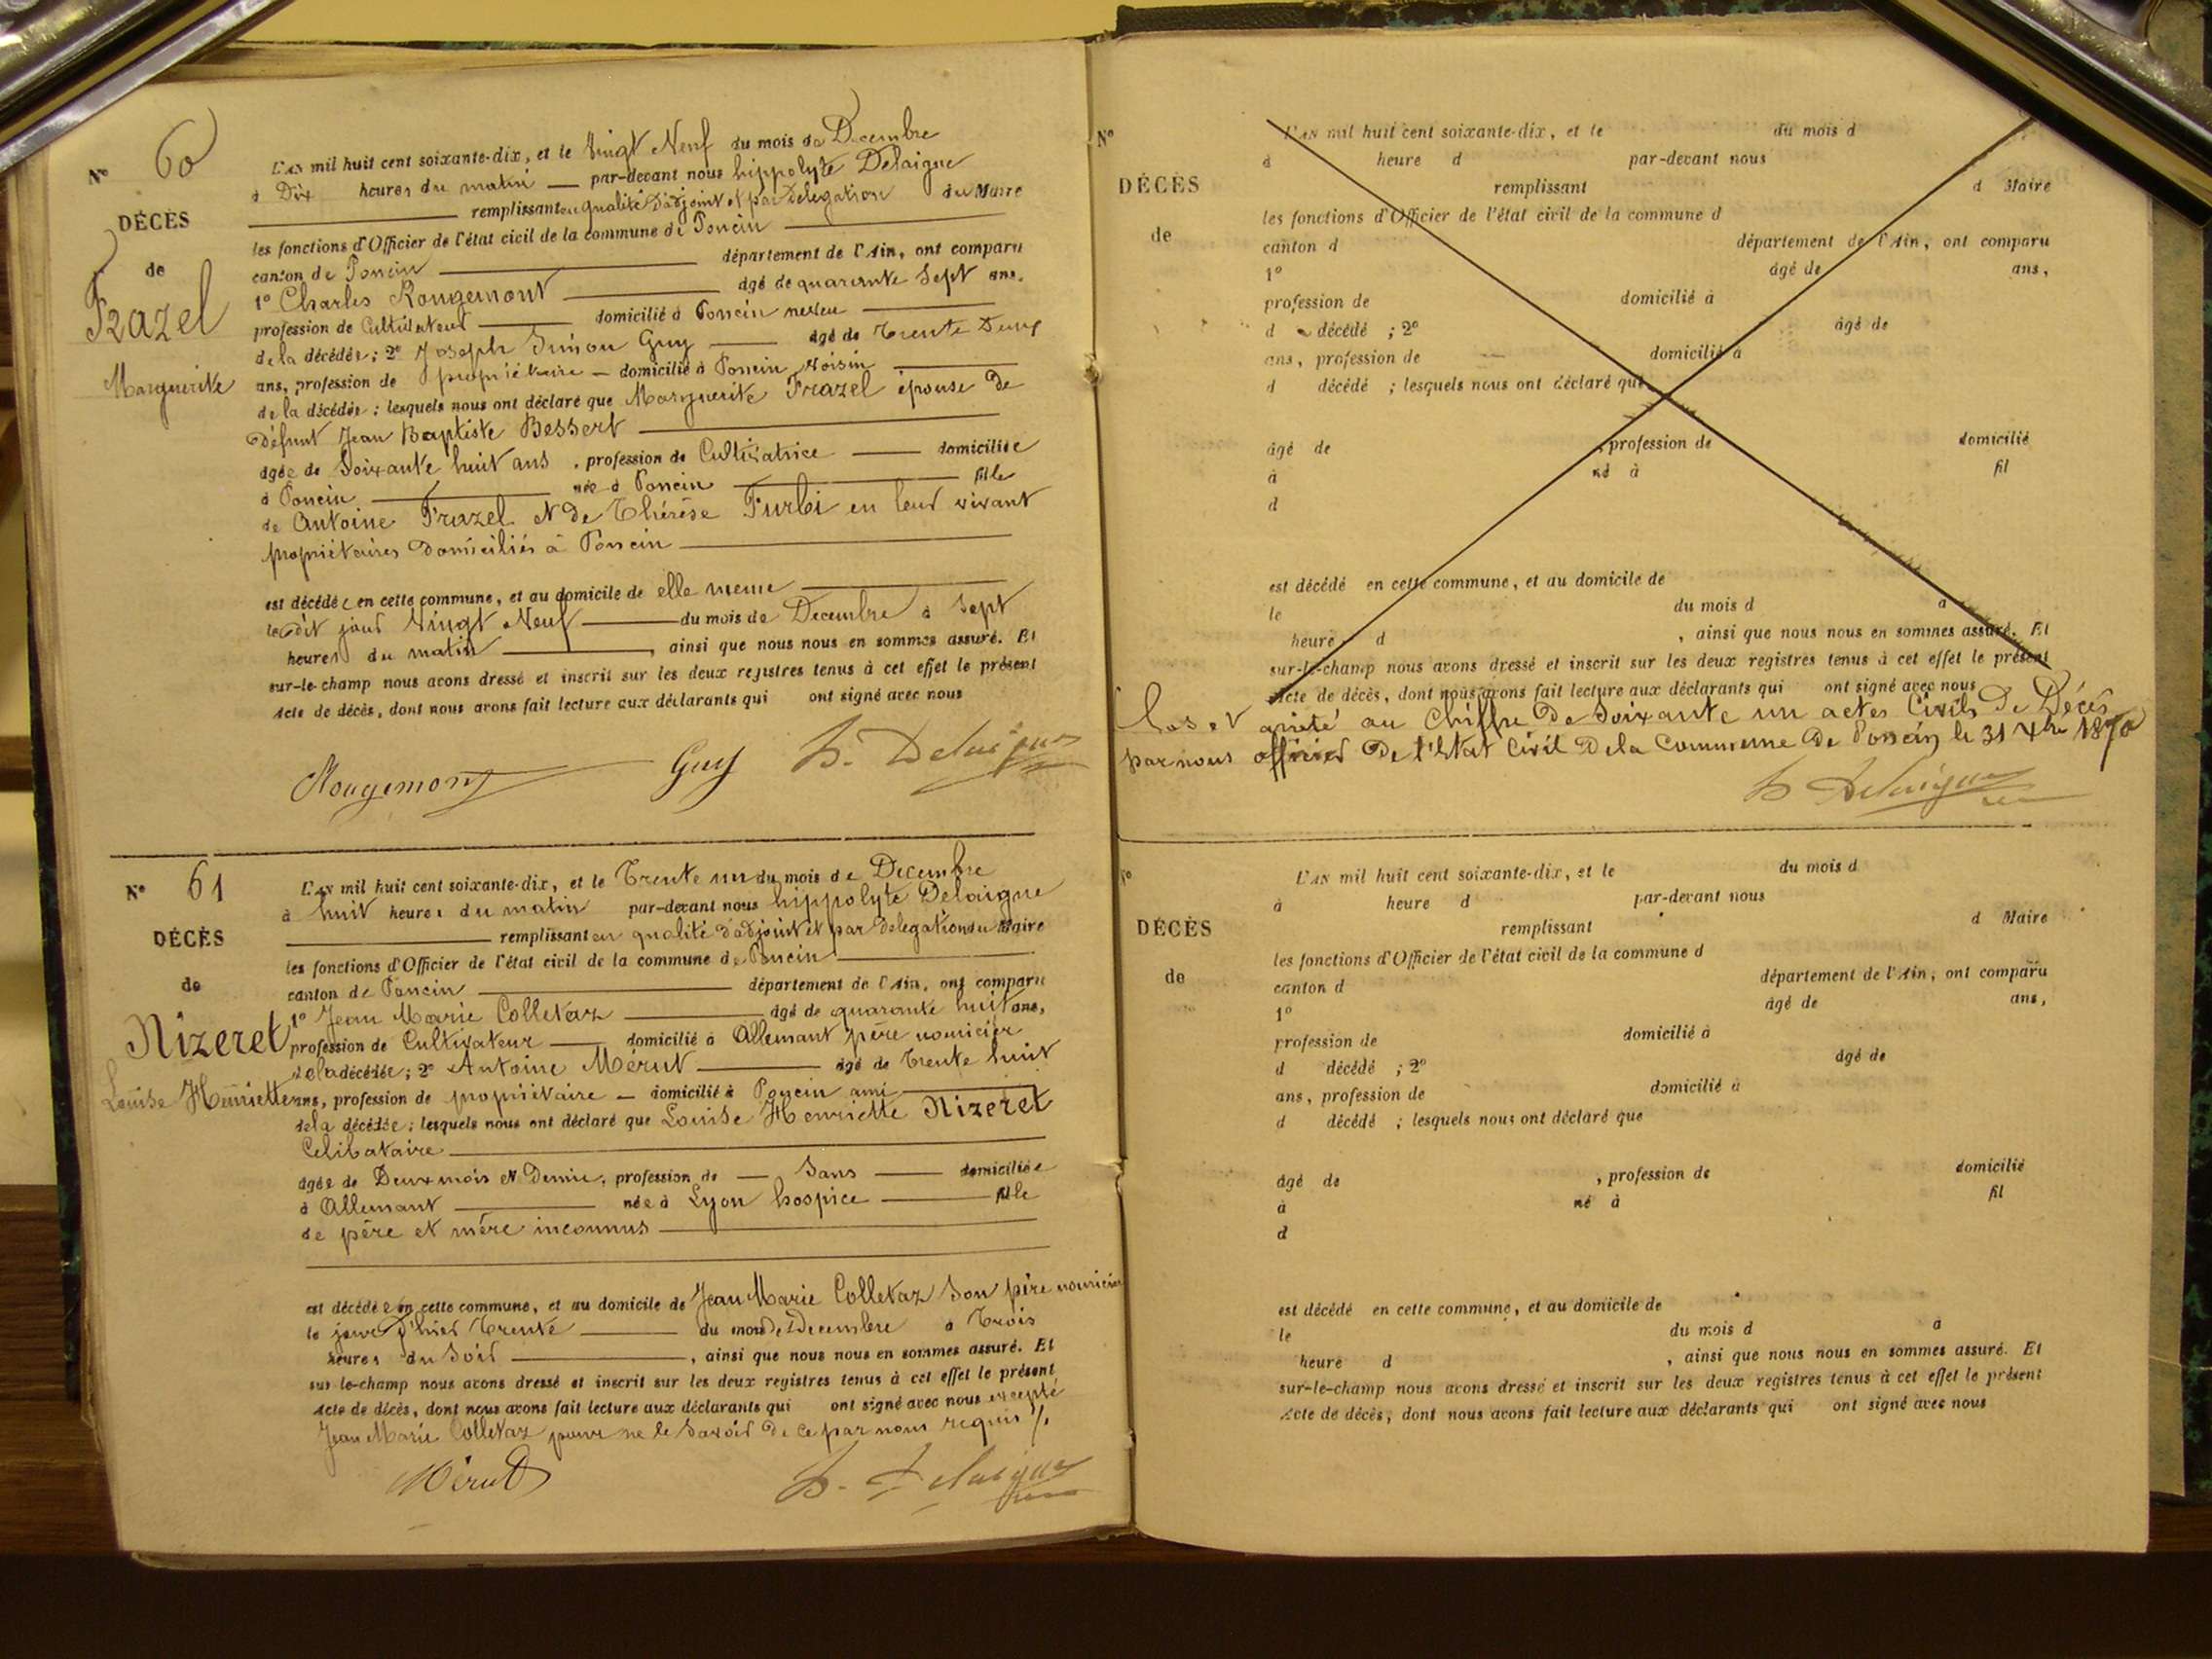 N° 60
DÉCÈS
de
Frazel
Marguerite
L'AN mil huit cent soixante-dix, et le Vingt Neuf du mois de Decembre
à Dix heures du matin — par-devant nous hippolyte Delaigne
remplissant en qualité d'adjoint et par Delegation du Maire
les fonctions d'Officier de l'état civil de la commune de Poncin
canton de Poncin département de l'Ain, ont comparu
1° Charles Rougemont âgé de quarante Sept ans,
profession de Cultivateur domicilié à Poncin neveu
de la décédée ; 2° Joseph Simon Guy âgé de Trente Deux
ans, profession de propriétaire — domicilié à Poncin Voisin
de la décédée ; lesquels nous ont déclaré que Marguerite Frazel épouse de
Défunt Jean Baptiste Bessert
âgée de Soixante huit ans , profession de Cultivatrice — domiciliée
à Poncin née à Poncin fille
de Antoine Frazel et de Thérèse Furbi en leur vivant
propriétaires domiciliés à Poncin
est décédée en cette commune, et au domicile de elle meme
le dit jour Vingt Neuf du mois de Decembre à Sept
heures du matin , ainsi que nous nous en sommes assuré. Et
sur-le-champ nous avons dressé et inscrit sur les deux registres tenus à cet effet le présent
Acte de décès, dont nous avons fait lecture aux déclarants qui ont signé avec nous
Rougemont Guy h. Delaigne
N° 61
DÉCÈS
de
Nizeret
Louise Henriette
L'AN mil huit cent soixante-dix, et le Trente un du mois de Decembre
à huit heures du matin par-devant nous hippolyte Delaigne
remplissant en qualité d'adjoint et par Delegation du Maire
les fonctions d'Officier de l'état civil de la commune de Poncin
canton de Poncin département de l'Ain, ont comparu
1° Jean Marie Colletaz âgé de quarante huit ans,
profession de Cultivateur — domicilié à Allemant père nouricier
de la décédée ; 2° Antoine Mérut âgé de Trente huit
ans, profession de propriétaire — domicilié à Poncin ami
de la décédée ; lesquels nous ont déclaré que Louise Henriette Nizeret
Celibataire
âgée de Deux mois et Demie, profession de — Sans — domiciliée
à Allemant née à Lyon hospice fille
de père et mère inconnus
est décédée en cette commune, et au domicile de Jean Marie Colletaz Son père nouricier
le jour d'hier Trente du mois de Decembre à Trois
heures du Soir , ainsi que nous nous en sommes assuré. Et
sur le-champ nous avons dressé et inscrit sur les deux registres tenus à cet effet le présent
Acte de décès, dont nous avons fait lecture aux déclarants qui ont signé avec nous excepté
Jean Marie Colletaz pour ne le Savoir de ce par nous requis
Mérut h. Delaigne
N°
DÉCÈS
de
L'AN mil huit cent soixante-dix, et le du mois d
à heure d par-devant nous
remplissant d Maire
les fonctions d'Officier de l'état civil de la commune d
canton d département de l'Ain, ont comparu
1° âgé de ans,
profession de domicilié à
d décédé ; 2° âgé de
ans, profession de domicilié à
d décédé ; lesquels nous ont déclaré que
âgé de , profession de domicilié
à né à fil
d
est décédé en cette commune, et au domicile de
le du mois d à
heure d , ainsi que nous nous en sommes assuré. Et
sur-le-champ nous avons dressé et inscrit sur les deux registres tenus à cet effet le présent
Acte de décès, dont nous avons fait lecture aux déclarants qui ont signé avec nous
Clos et arrêté au Chiffre de Soixante un actes Civils de Décès
par nous officier de l'Etat Civil de la Commune de Poncin le 31 Xbre 1870
h Delaigne
N°
DÉCÈS
de
L'AN mil huit cent soixante-dix, et le du mois d
à heure d par-devant nous
remplissant d Maire
les fonctions d'Officier de l'état civil de la commune d
canton d département de l'Ain, ont comparu
1° âgé de ans,
profession de domicilié à
d décédé ; 2° âgé de
ans, profession de domicilié à
d décédé ; lesquels nous ont déclaré que
âgé de , profession de domicilié
à né à fil
d
est décédé en cette commune, et au domicile de
le du mois d à
heure d , ainsi que nous nous en sommes assuré. Et
sur-le-champ nous avons dressé et inscrit sur les deux registres tenus à cet effet le présent
Acte de décès, dont nous avons fait lecture aux déclarants qui ont signé avec nous